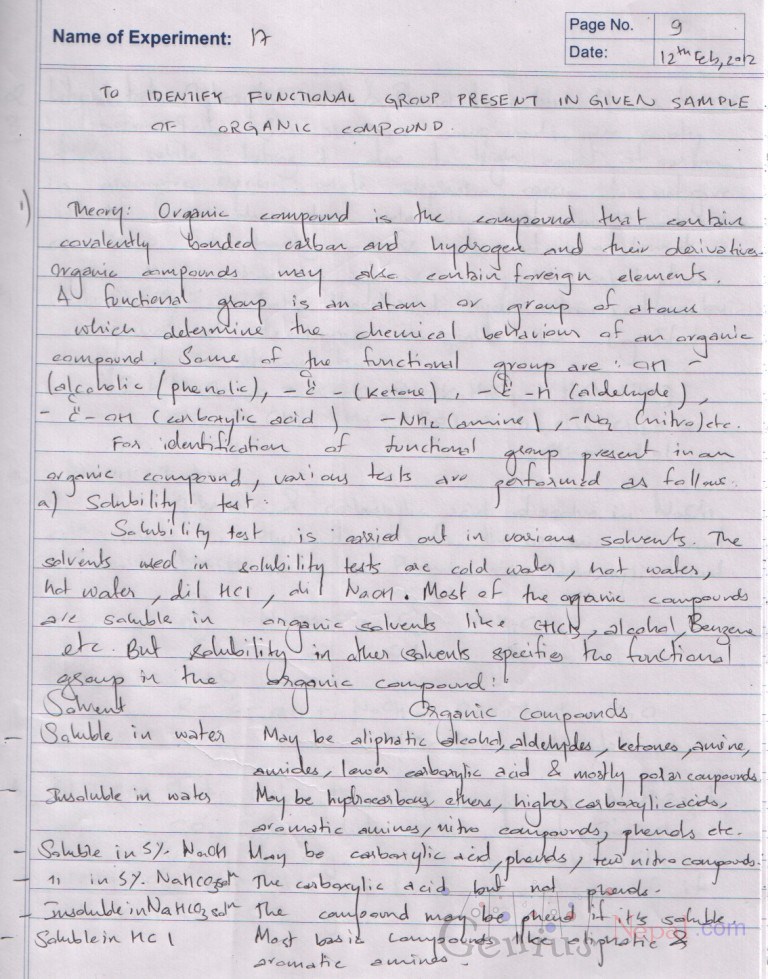 Name of Experiment: 17
Page No. 9
Date: 12th Feb, 2012
TO IDENTIFY FUNCTIONAL GROUP PRESENT IN GIVEN SAMPLE
OF ORGANIC COMPOUND.
1)
Theory: Organic compound is the compound that contain
covalently bonded carbon and hydrogen and their derivative.
Organic compounds may also contain foreign elements.
A functional group is an atom or group of atoms
which determine the chemical behaviour of an organic
compound. Some of the functional group are : OH -
(alcoholic/phenolic), -C(=O)- (ketone), -C(=O)-H (aldehyde),
-C(=O)-OH (carboxylic acid) -NH2 (amine), -NO2 (nitro) etc.
For identification of functional group present in an
organic compound, various tests are performed as follows.
a) Solubility test:
Solubility test is carried out in various solvents. The
solvents used in solubility tests are cold water, hot water,
hot water, dil HCl, dil NaOH. Most of the organic compounds
are soluble in organic solvents like CHCl3, alcohol, Benzene
etc. But solubility in other solvents specifies the functional
group in the organic compound:
Solvent Organic compounds
- Soluble in water May be aliphatic alcohol, aldehydes, ketones, amine,
amides, lower carboxylic acid & mostly polar compounds.
- Insoluble in water May be hydrocarbons, ethers, higher carboxylic acids,
aromatic amines, nitro compounds, phenols etc.
- Soluble in 5% NaOH May be carboxylic acid, phenols, few nitro compounds.
- " in 5% NaHCO3 soln The carboxylic acid but not phenols.
- Insoluble in NaHCO3 soln The compound may be phenol if it's soluble
- Soluble in HCl Most basic compounds like aliphatic &
aromatic amines.
Genius Nepal.com